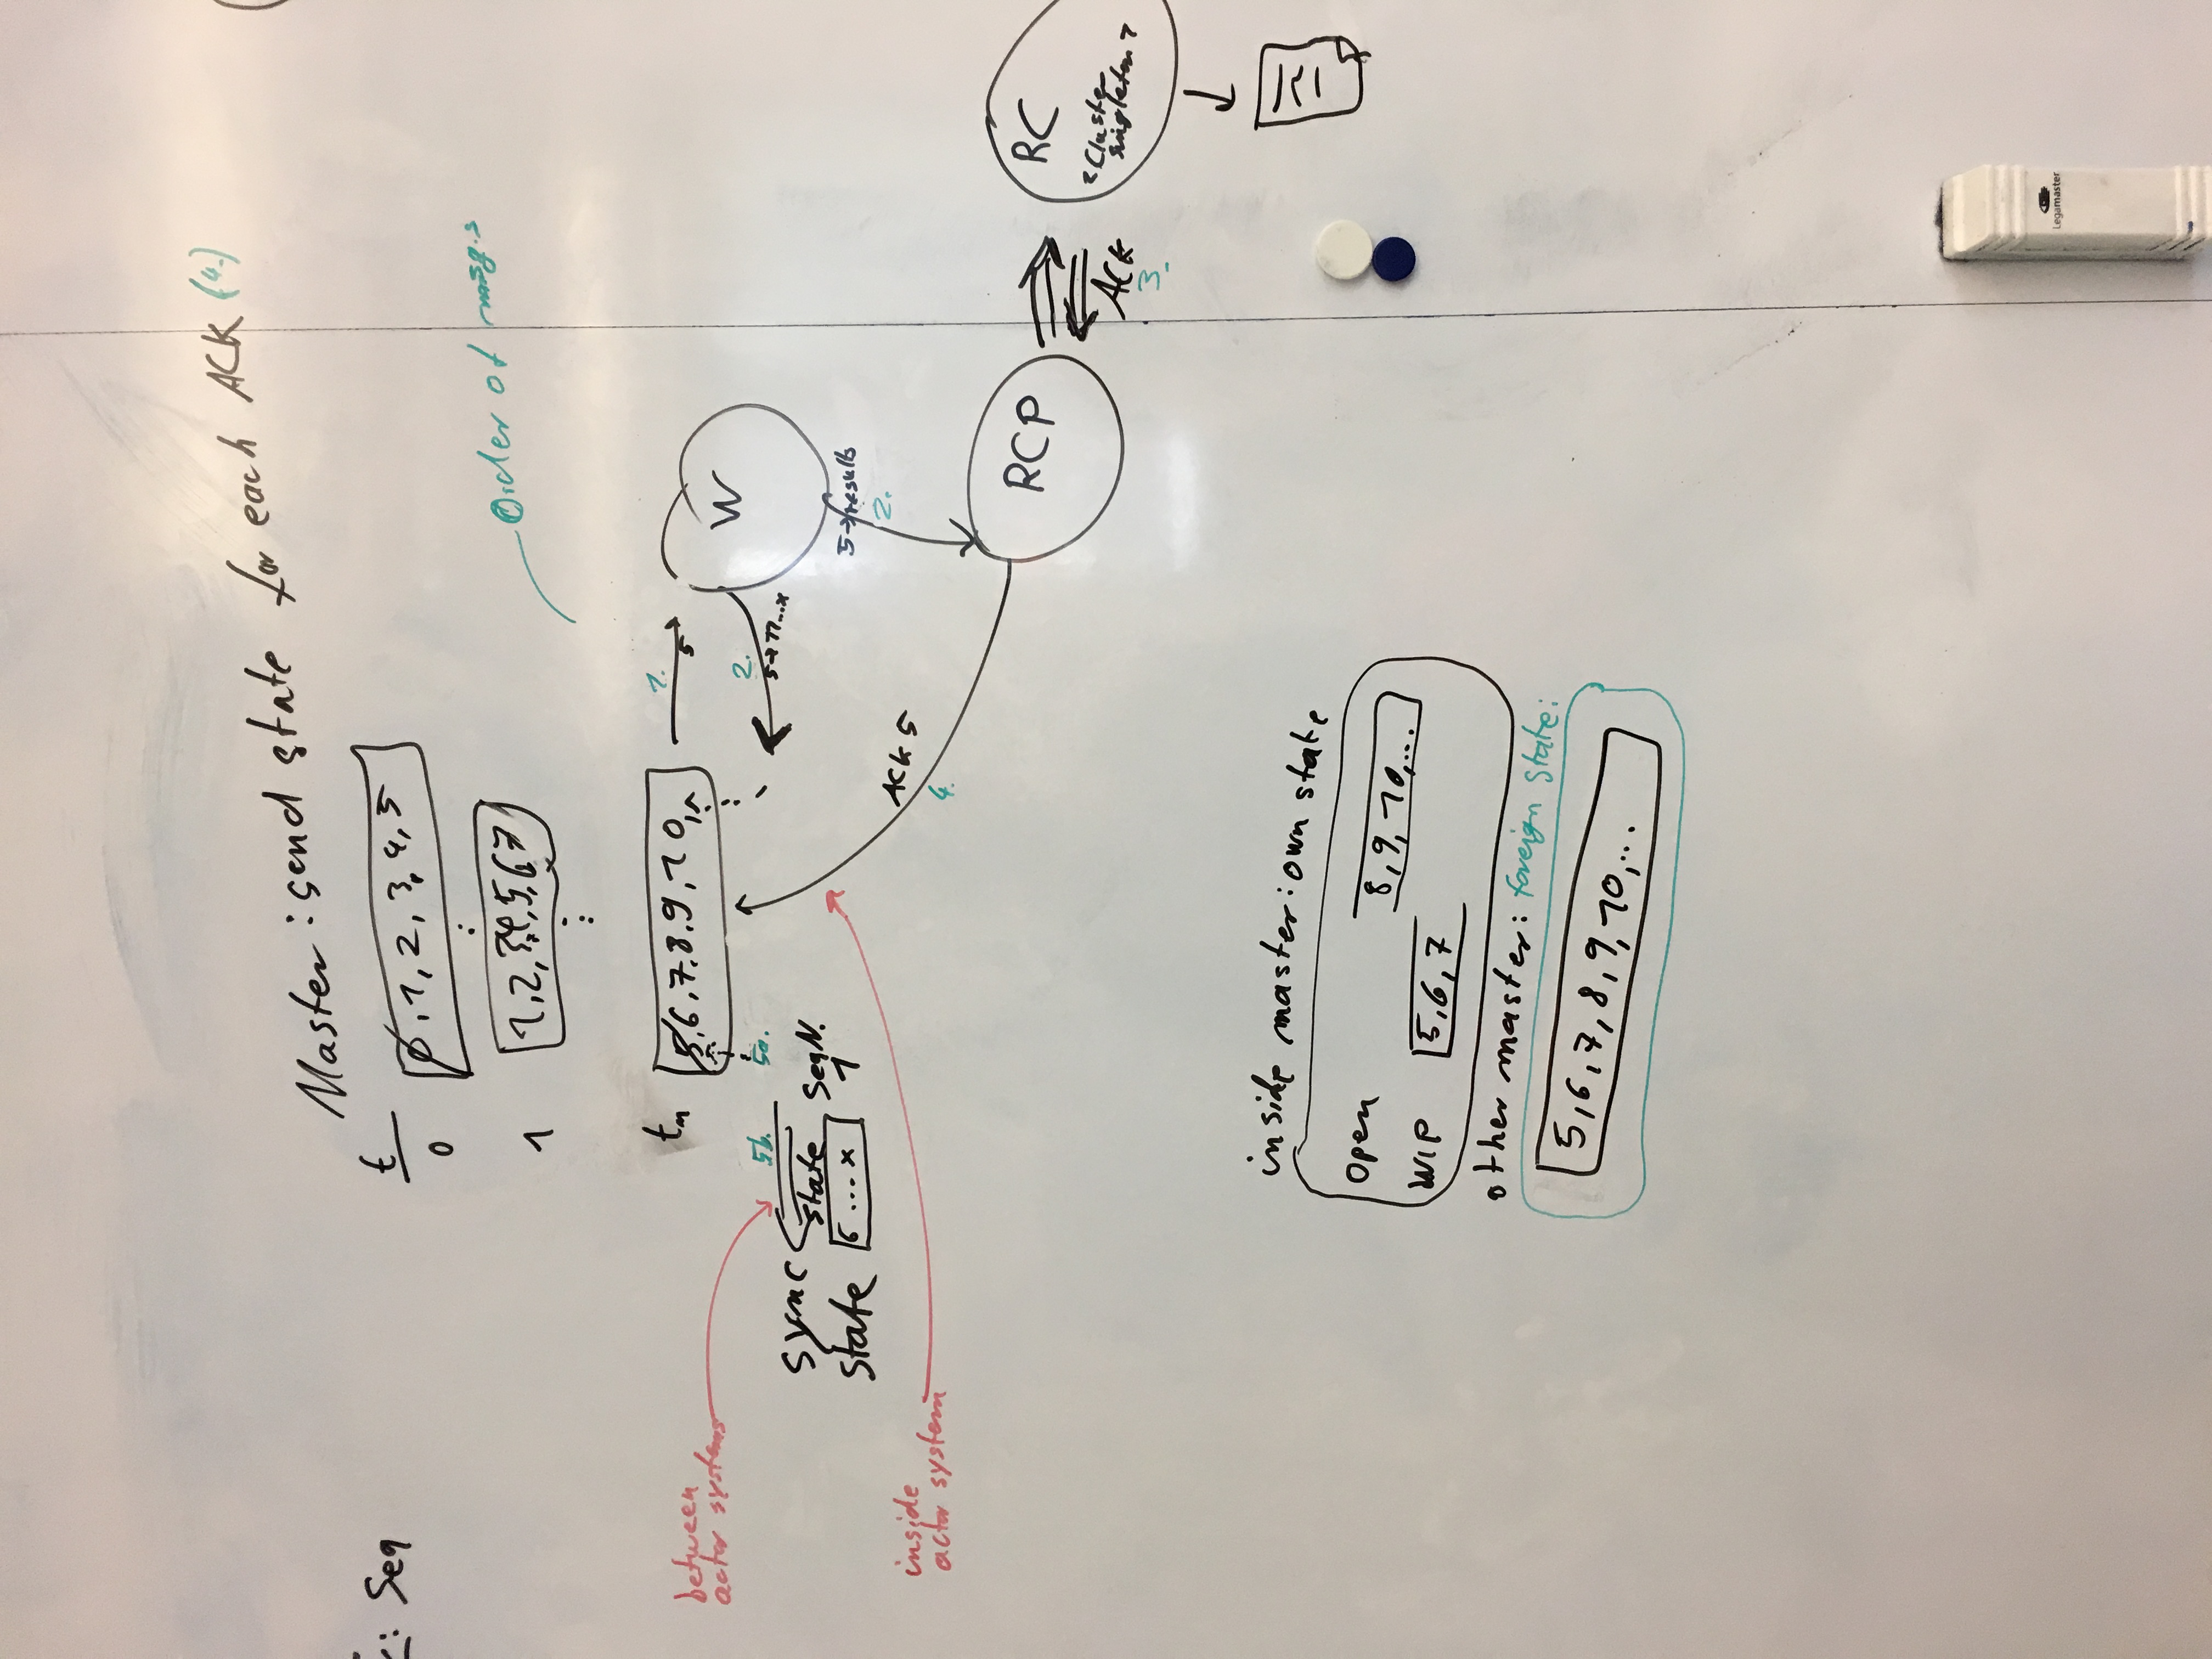 Master: send state for each ACK (4.)
: Seq
t
0
0, 1, 2, 3, 4, 5
1
1, 2, 3, 4, 5, 6, 7
Order of msg.s
tn
5, 6, 7, 8, 9, 10,
1.
5
W
2.
5→11...x
between
actor systems
5b.
5a.
sync
state
SeqN.
state
6 ... x
1
5→results
2.
inside
actor system
ACK 5
4.
RCP
RC
Cluster
singleton
ACK
3.
inside master: own state
Open
8, 9, 10, ...
WIP
5, 6, 7
other master: foreign state:
5, 6, 7, 8, 9, 10, ...
Legamaster